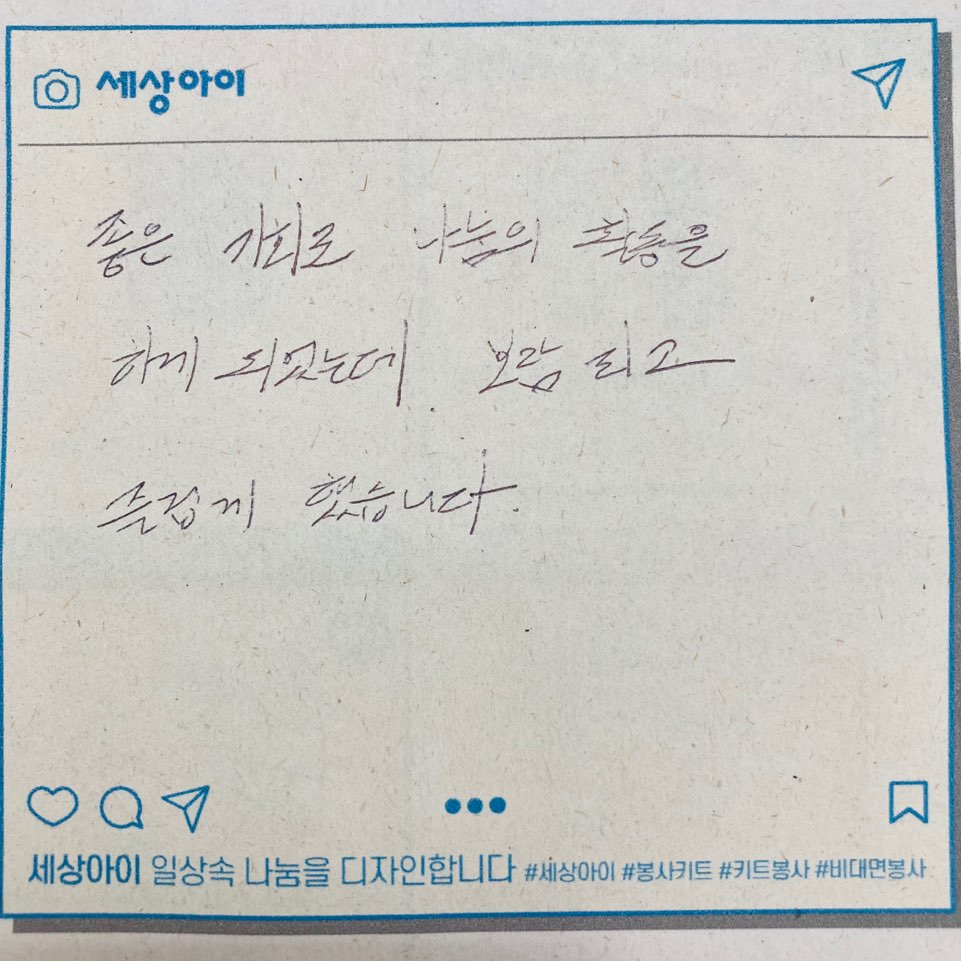 세상아이
좋은 기회로 나눔의 활동을
하게 되었는데 보람되고
즐겁게 했습니다.
세상아이 일상속 나눔을 디자인합니다 #세상아이 #봉사키트 #키트봉사 #비대면봉사